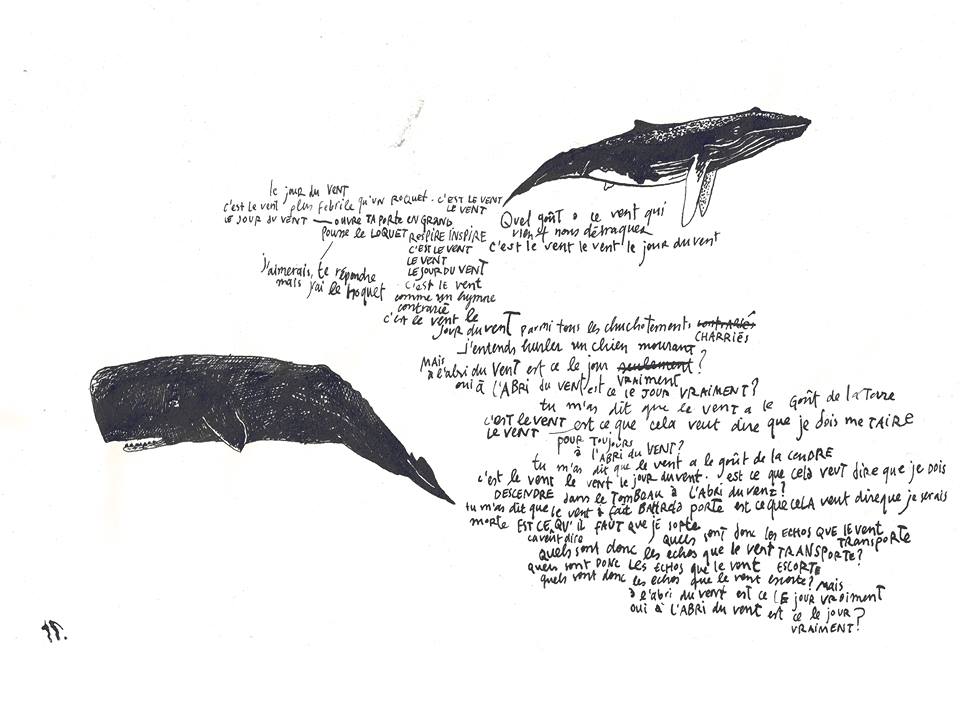 le jour du VENT
c'est le vent plus febrile qu'un ROQUET. C'EST LE VENT
LE VENT
LE JOUR DU VENT — OUVRE TA PORTE EN GRAND
pousse le LOQUET RESPIRE INSPIRE
C'EST LE VENT
LE VENT
LE JOUR DU VENT
j'aimerais te répondre
mais j'ai le hoquet
C'est LE vent
comme un hymne
contrarié
c'est le vent le
jour du venT parmi tous les chuchotements contrariés
CHARRIÉS
Quel goût a ce vent qui
vient nous détraquer
c'est le vent le vent le jour du vent
j'entends hurler un chien mourant
MAIS
à l'abri du VENT est ce le jour seulement ?
VRAIMENT
oui à L'ABRI du VENT est ce le JOUR VRAIMENT?
tu m'as dit que le vent a le goût de la Terre
c'est le VENT est ce que cela veut dire que je dois me TAIRE
LE VENT
pour toujours
à l'ABRI du VENT?
tu m'as dit que le vent a le goût de la CENDRE
c'est le vent le vent le jour du vent. est ce que cela veut dire que je dois
DESCENDRE dans le TomBEAU à L'ABRI du venT ?
tu m'as dit que le vent a fait BATTRE la PORTE est ce que CELA veut dire que je serais
morte EST CE QU'IL FAUT que je sorte
ça veut dire
quels sont donc les ECHOS QUE LE VENT
TRANSPORTE
quels sont donc les echos que le vent TRANSPORTE?
quels sont DONC LES ECHOS que le vent ESCORTE
quels sont donc les echos que le vent escorte? MAIS
à l'abri du vent est ce LE jour VRAIMENT
oui à L'ABRI du vent est ce le jour?
VRAIMENT?